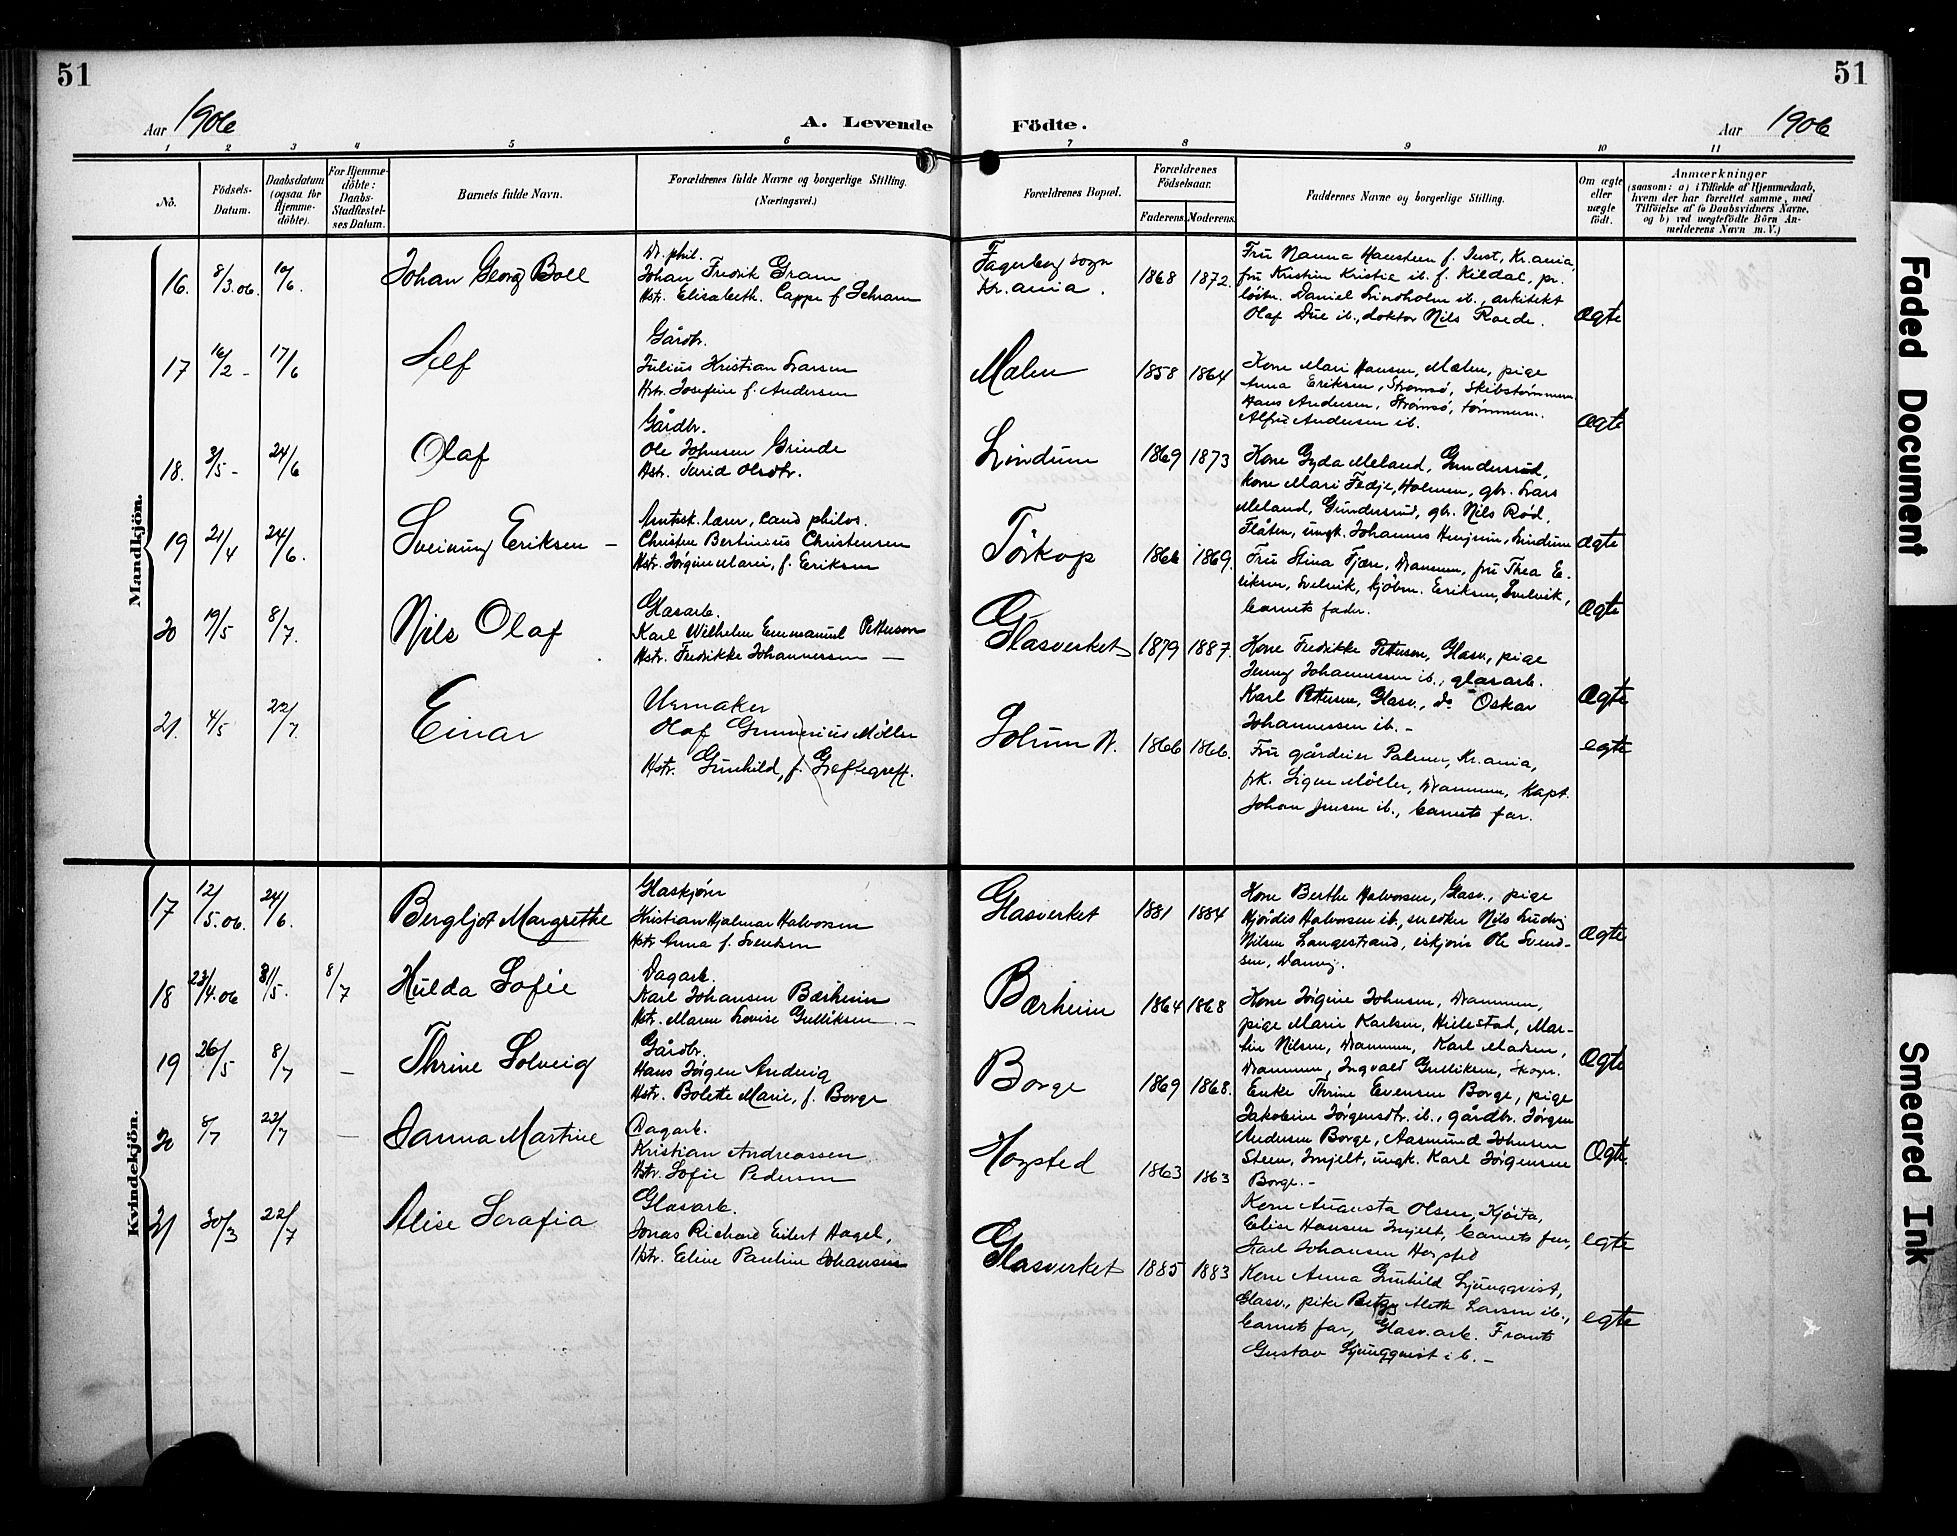 51
51
Aar 1906
A. Levende Födte.
Aar 1906
1 2 3 4 5 6 7 8 9 10 11
No.
Födsels-Datum.
Daabsdatum (ogsaa for Hjemme-döbte).
For Hjemme-döbte: Daabs-Stadfæstel-ses Datum.
Barnets fulde Navn.
Forældrenes fulde Navne og borgerlige Stilling.
(Næringsvei.)
Forældrenes Bopæl.
Forældrenes Födselsaar.
Faderens. Moderens.
Faddernes Navne og borgerlige Stilling.
Om ægte eller uægte födt.
Anmærkninger
(saasom: a) i Tilfælde af Hjemmedaab,
hvem der har forrettet samme, med
Tilföielse af to Daabsvidners Navne,
og b) ved uægtefödte Börn An-
melderens Navn m. V.)
Mandkjön.
16. 8/3.06. 10/6. Johan Georg Boll
Dr. phil.
Johan Fredrik Gram
Hstr. Elisabeth Cappe f. Schram
Fagerborg sogn
Kr.ania.
1868 1872.
Fru Nanna Hansteen f. Just, Kr.ania,
fru Kristin Kristie ib. f. Kildal, pr.
løitn. Daniel Lindholm ib., arkitekt
Olaf Due ib., doktor Nils Roede.
Ægte
17 16/2 - 17/6 Alf
Gårdbr.
Julius Kristian Larsen
Hstr. Josefine f. Andersen
Malen 1858 1864
Kone Mari Hansen, Malen, pige
Anna Eriksen, Strømsø, skibstømmerm.
Hans Andersen, Strømsø, tømmerm.
Alfred Andersen ib.
Ægte
18. 3/5 - 24/6 Olaf
Gårdbr.
Ole Johnsen Grinde
Hstr. Turid Olsdtr.
Lindum 1869 1873
Kone Gyda Meland, Gundersrud,
kone Mari Fedje, Holmen, gbr. Lars
Meland, Gundersrud, gbr. Nils Rød,
Flåten, ungk. Johannes, Lindum
Ægte
19 21/4 24/6. Sveinung Eriksen -
Amtssk. lærer, cand philos.
Christen Bertinius Christensen
Hstr. Jørgine Marie, f. Eriksen
Tørkop 1866 1869.
Fru Stina Fjære, Drammen, fru Thea E-
riksen, Svelvik, kjøbm. Eriksen, Svelvik,
barnets fader.
Ægte
20 19/5 8/7. Nils Olaf
Glasarb.
Karl Wilhelm Emmanuel Petterson
Hstr. Fredrikke Johannessen -
Glasverket 1879 1887.
Kone Fredrikke Pettersen, Glasv., pige
Jenny Johannessen ib., glasarb.
Karl Pettersen, Glasv., do Oskar
Johannessen ib. -
Ægte
21. 4/5 22/7. Einar
Urmaker
Olaf Gunnerius Møller
Hstr. Gunhild, f. Greftegreff.
Solum N. 1866 1866.
Fru gårdeier Palmer, Kr.ania,
frk. Signe Møller, Drammen, Kapt.
Johan Jensen ib., barnets far.
egte
Kvindekjön.
17 12/5.06. 24/6. Bergljot Margrethe
Glaskjører
Kristian Hjalmar Halvorsen
Hstr Anna f. Svendsen
Glasverket 1881 1884
Kone Berthe Halvorsen, Glasv., pige
Hjørdis Halvorsen ib., snedker Nils Ludvig
Nilsen Langestrand, iskjører Ole Svend-
sen,
Ægte
18 23/4.06 31/5. 8/7 Hulda Sofie
Dagarb.
Karl Johansen Bærheim
Hstr. Maren Lovise Gulliksen -
Bærheim 1864 1868
Kone Jørgine Johnsen, Drammen,
pige Marie Karlsen, Hillestad, Mar-
tin Nilsen, Drammen, Karl Madsen,
Drammen, Ingvald Gulliksen, Skogn.
Ægte
19 26/5 8/7 - Thrine Solveig
Gårdbr.
Hans Jørgen Andering
Hstr. Bolette Marie, f. Borge
Borge 1869 1868.
Enke Thrine Evensen Borge, pige
Jakobine Jørgensdtr. ib., gårdbr. Jørgen
Andersen Borge, Aasmund Johnsen
Steen, Imjelt, ungk. Karl Jørgensen
Borge. -
Ægte.
20 8/7 22/7 - Danna Martine
Dagarb.
Kristian Andreassen
Hstr. Sofie Pedersen
Hogsted 1863 1863
Kone Augusta Olsen, Kjøsta,
Elise Hansen Imjelt, barnets far,
Karl Johansen Hogsted
egte
21 30/3 22/7 Alise Serafia
Glasarb.
Jonas Richard Eilert Hagel,
Hstr. Eline Pauline Johansen
Glasverket 1885 1883
Kone Anna Gunhild Ljungqvist,
Glasv., pike Betzy Aleth Larsen ib.,
barnets far, Glasv. arb. Frants
Gustav Ljungqvist ib. -
egte
Faded Document
Smeared Ink